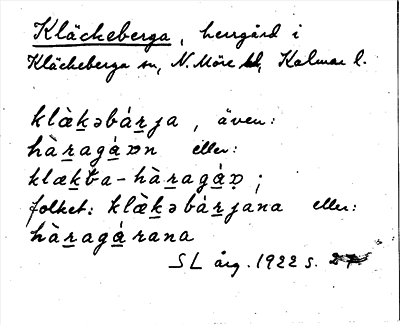 Kläckeberga, herrgård i
Kläckeberga sn, N. Möre hd, Kalmar l.
klæ̀ḵəbá̱rja, även:
hà̱ragá̱ɒn eller:
klæḵba-hà̱ragá̱ɒ̣;
folket: klæ̀ḵəbá̱rjana eller:
hà̱ragá̱rana
SL årg. 1922 s. 27